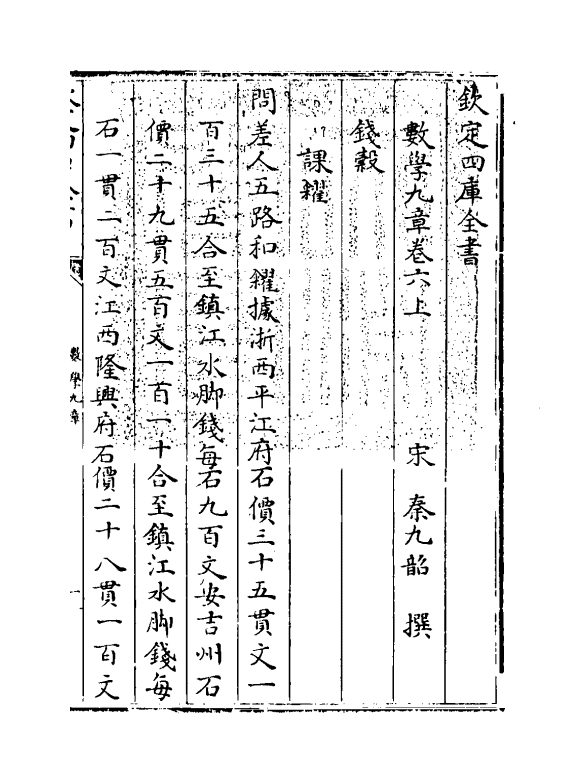 欽定四庫全書
數學九章卷六上　宋　秦九韶　撰
錢穀
課糴
問差人五路和糴據浙西平江府石價三十五貫文一
百三十五合至鎮江水脚錢每石九百文安吉州石
價二十九貫五百文一百一十合至鎮江水脚錢每
石一貫二百文江西隆興府石價二十八貫一百文
數學九章
一